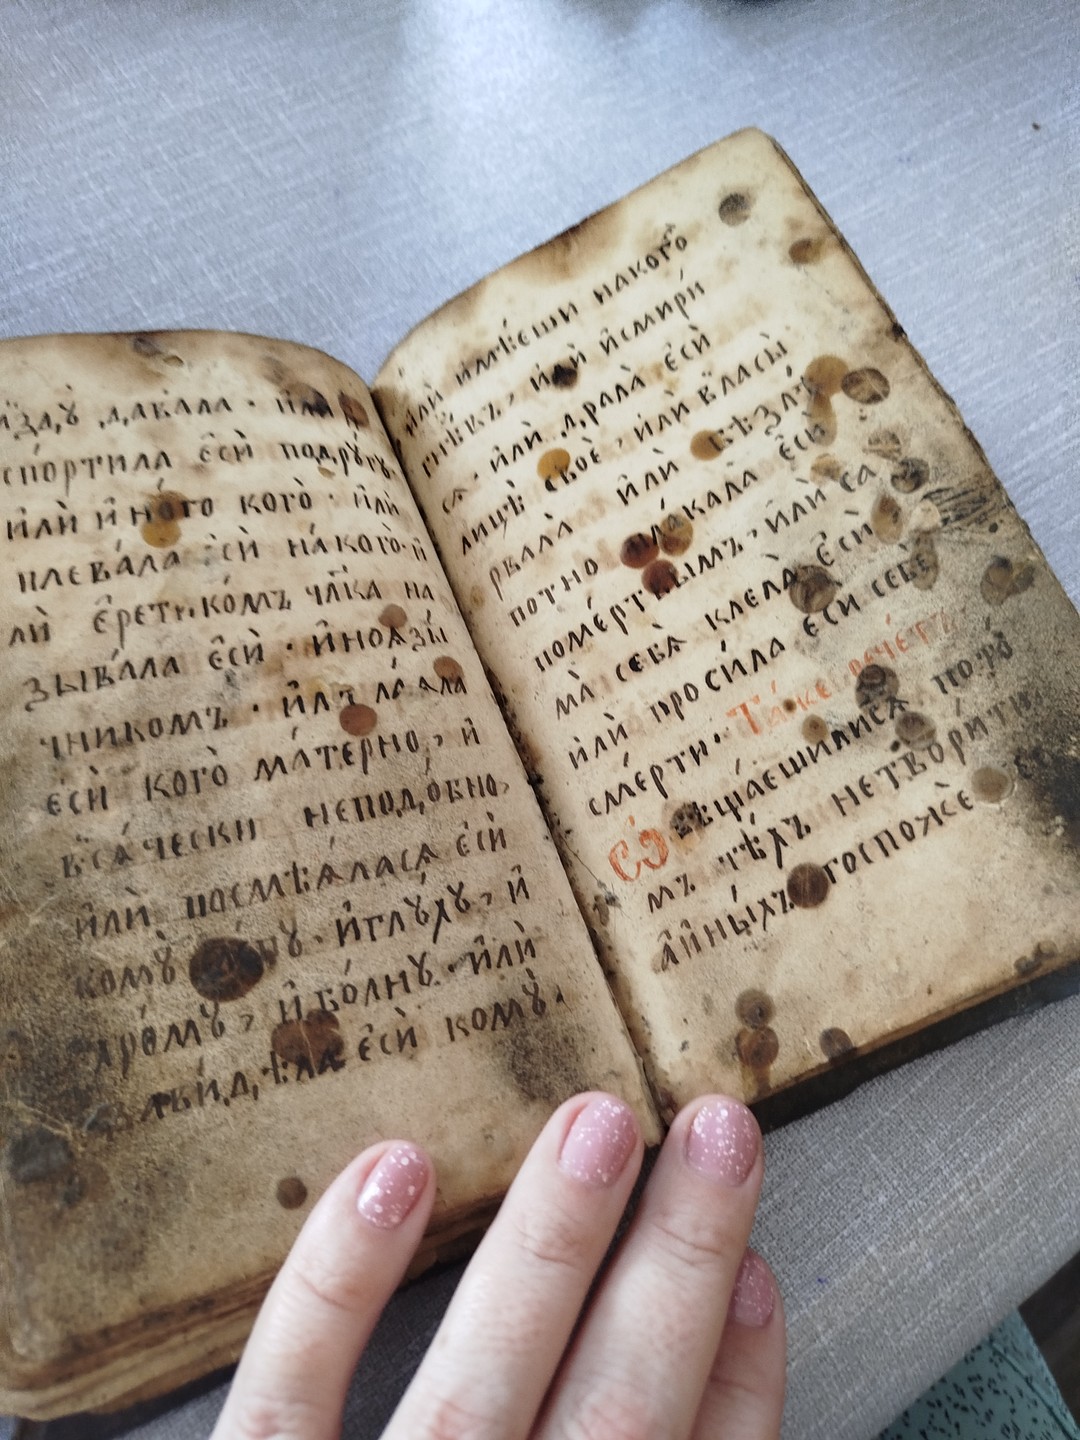 мзду давала · или
спортила еси подругу,
или и ного кого · или
плевала еси на кого · и
ли еретикомъ члка на
зывала еси · и ноязы
чникомъ · или лаяла
еси кого матерно, и
всячески неподобно,
или посмѣяласѧ еси
кому · и глуху, и
хрому, и болну · или
еси кому
или имѣеши на кого
гнѣвъ, или и смири
сѧ · или драла еси
лицѣ своѐ, или власы
рвала или безлѣ
потно плакала еси
по мертвымъ, или са
ма себѧ клела еси
или просила еси себѣ
смерти · Таже речетъ
Обѣщаешилисѧ
мъ тѣхъ не творити
анныхъ госпоже